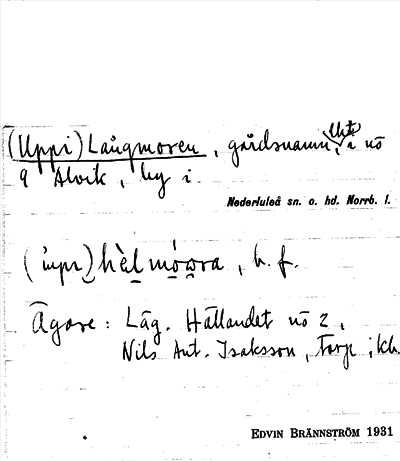 (Uppi) Långmoren, gårdsnamn, i nö
9 Alvik, by i
Nederluleå sn. o. hd. Norrb. l.
b. f.
Ägare: Läg. Hällandet nö 2,
Nils Ant. Isaksson, Torp
EDVIN BRÄNNSTRÖM 1931